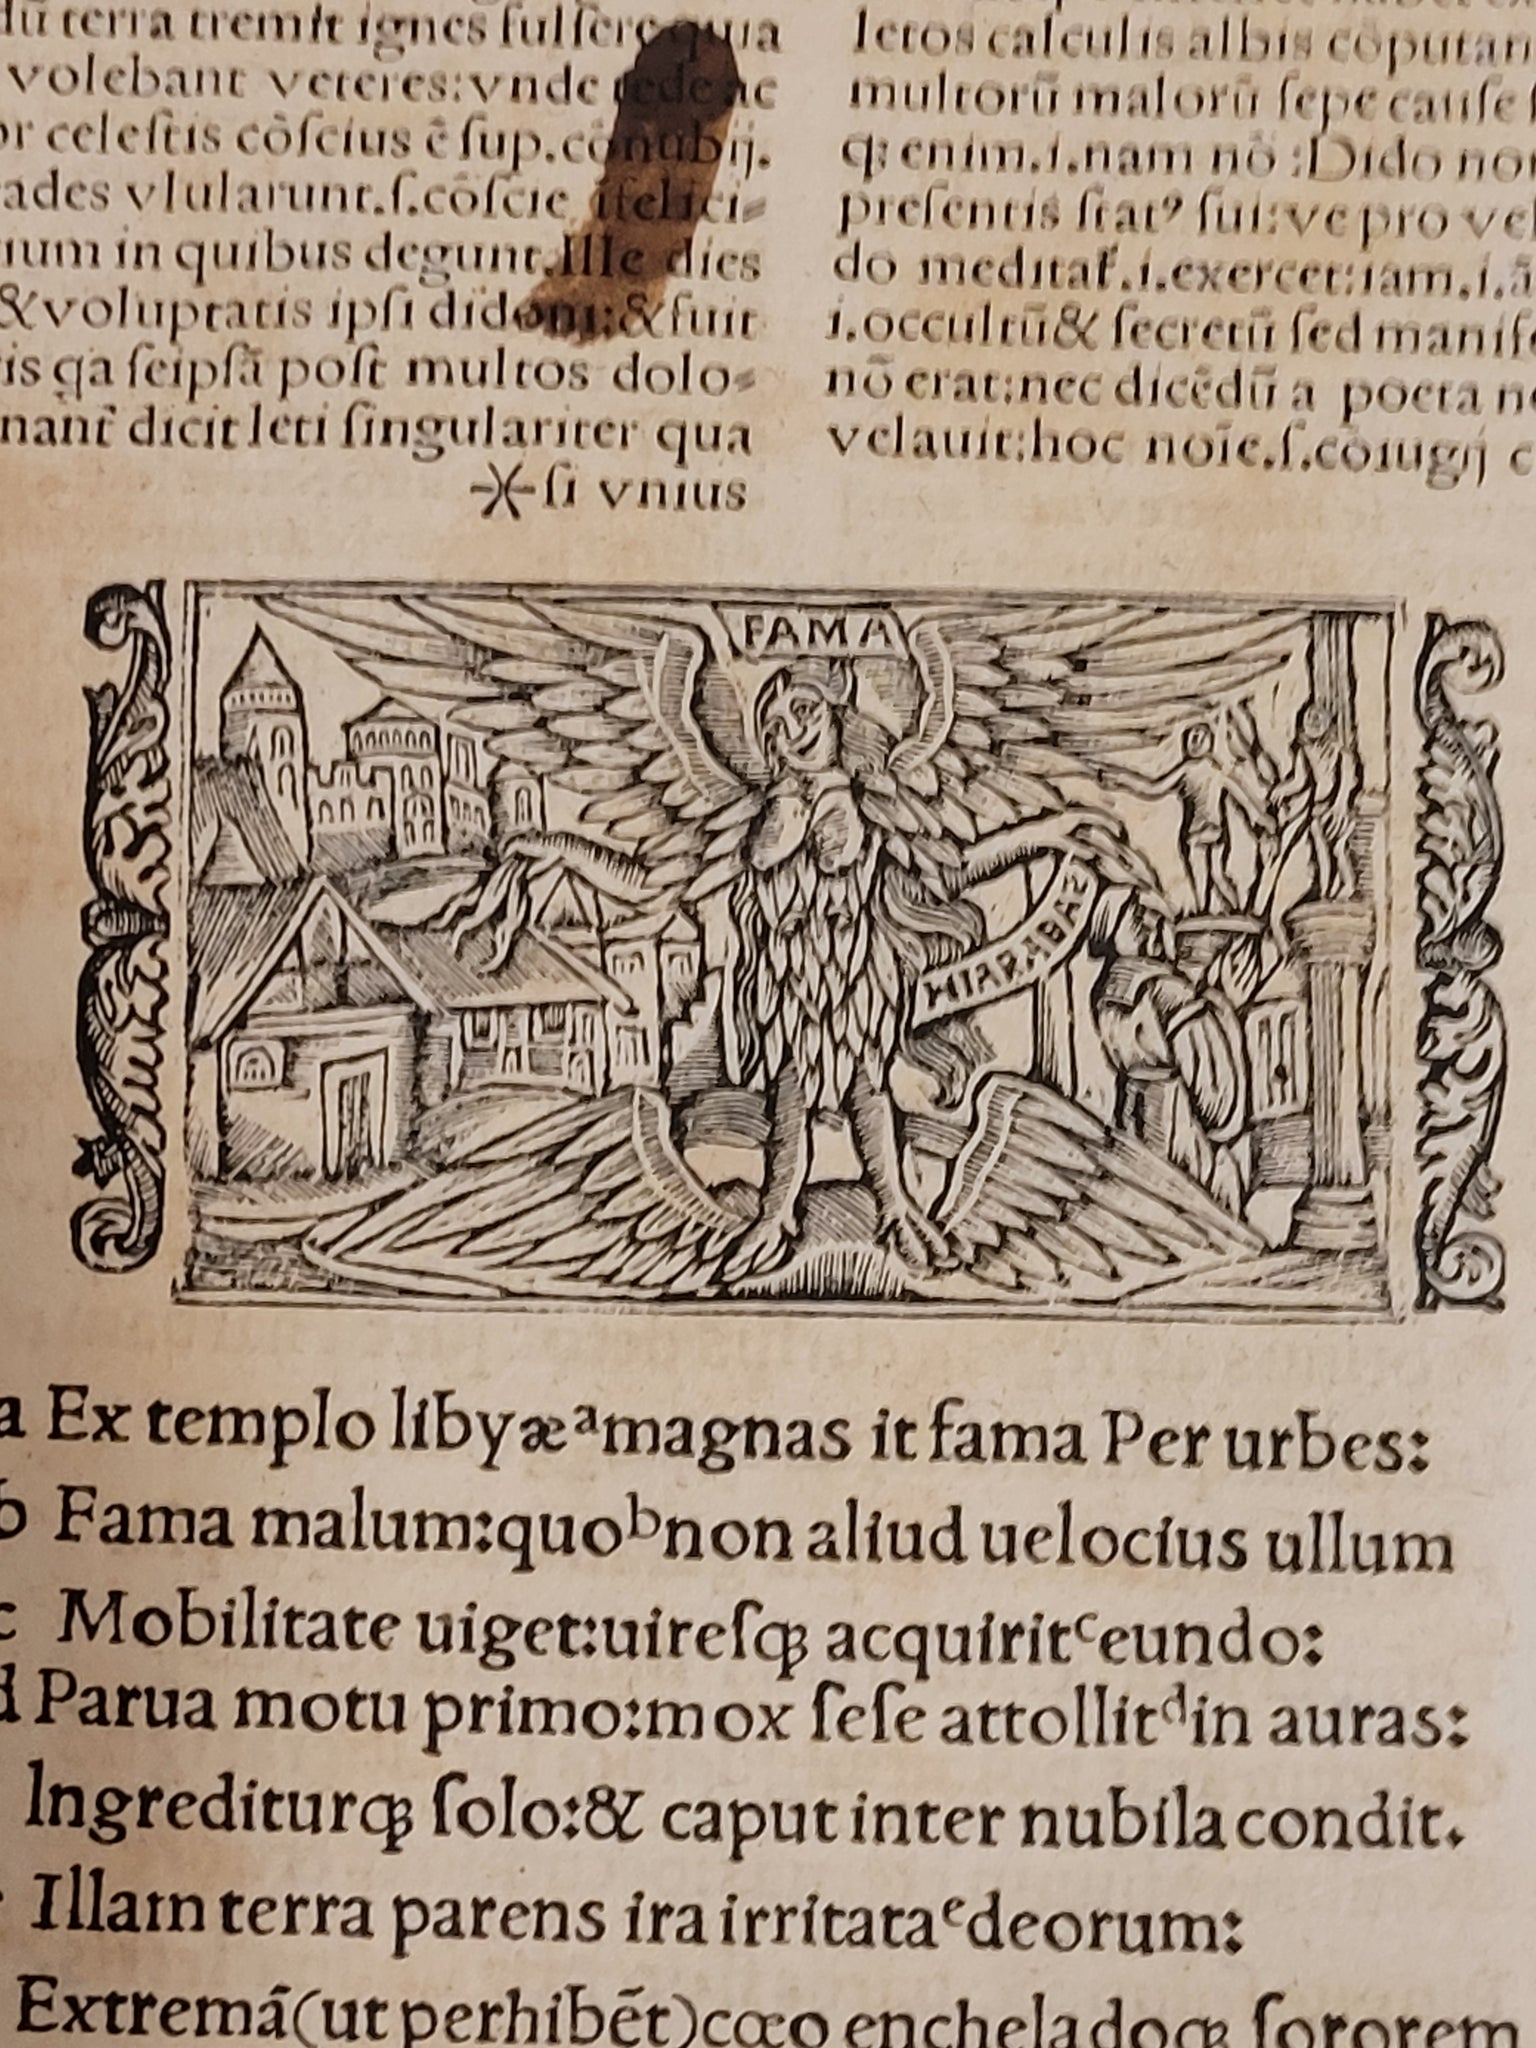 dũ terra tremit ignes fulſere quia
volebant veteres:vnde fede ac
or celeſtis cõſcius ẽ ſup.cõnubij.
ades vlularunt.ſ.cõſcie ifelici⸗
ium in quibus degunt.Ille dies
&voluptatis ipſi didoni:&fuit
is qa ſeipſã poſt multos dolo⸗
nant̃ dicit leti ſingulariter qua
ſi vnius
letos calculis albis cõputan
multorũ malorũ ſepe cauſe
q; enim.i.nam nõ :Dido non
preſentis ſtatꝰ ſui:ve pro vel
do meditat̃.i.exercet:iam.i.ã
i.occultũ& ſecretũ ſed manife
nõ erat:nec dicẽdũ a poeta
velauit:hoc noĩe.ſ.coiugij c
FAMA
HIARBAS
a Ex templo libyæ ᵃmagnas it fama Per urbes:
b Fama malum:quo ᵇnon aliud uelocius ullum
c Mobilitate uiget:uireſqꝫ acquirit ᶜeundo:
d Parua motu primo:mox ſeſe attollit ᵈin auras:
Ingrediturqꝫ ſolo:& caput inter nubila condit.
Illam terra parens ira irritata ᵉdeorum:
Extremã(ut perhibẽt)cœo encheladoqꝫ ſororem